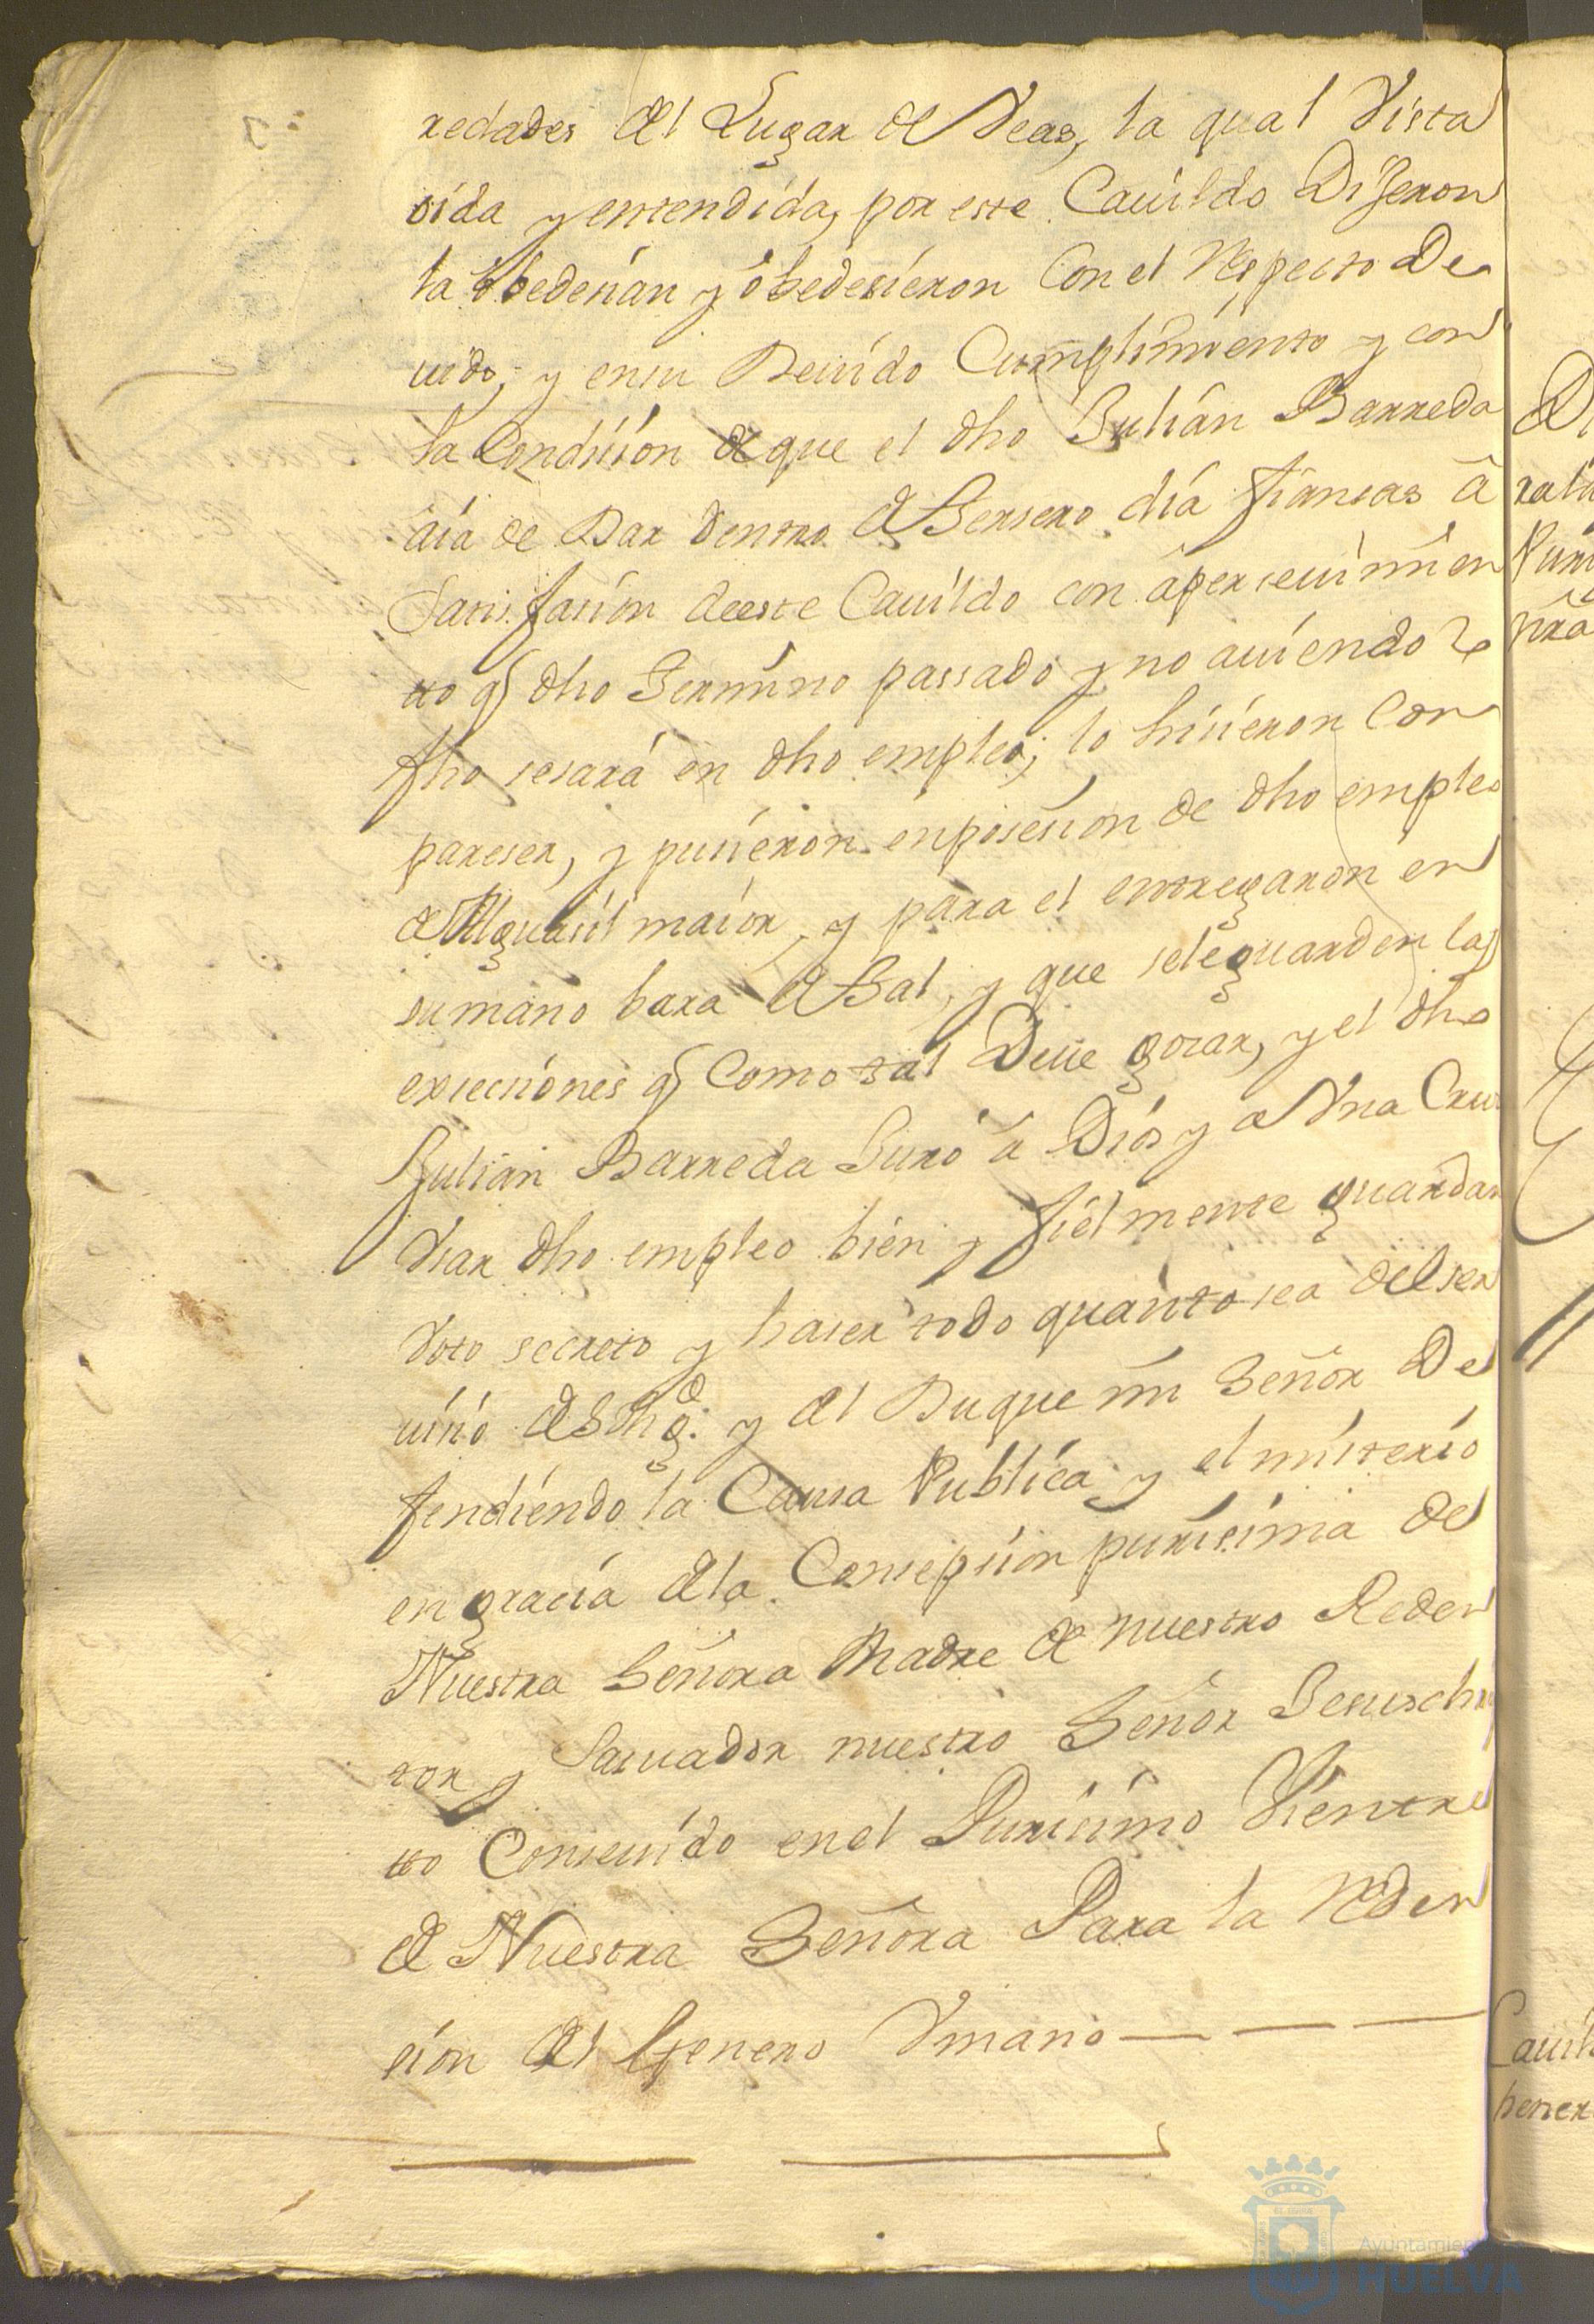 redades del Lugar de Veas, la qual Vista
oida y entendida, por este Cauildo Dijeron
la obedecian y obedesieron Con el Respecto De
uido, y en su Deuido Cumplimiento y con
la Condision de que el dho Julian Barreda
aia de Dar dentro de Tersero dia fiansas â
Satisfasion de este Cauildo con âperseuimien
to q dho Termino passado y no auiendolo
fho sesará en dho empleo; lo hisieron Con
pareser, y pusieron en posesion de dho empleo
de Alguasil maior, y para el entregaron en
su mano bara de Tal, y que se le guarden las
exsecsiones q Como tal Deue gozar, y el dho
Julian Barreda Juró â Dios y a Vna Crus
Vsar dho empleo bien y fielmente guardar
Voto secreto y haser todo quanto sea del ser
uisio de S Mgd. y del Duque mi Señor De
fendiendo la Causa Publica, y el misterio
en gracia de la Consepsion purisima de
Nuestra Señora Madre de nuestro Reden
tor y Saluador nuestro Señor Jesuschris
to Conseuido en el Purisimo Vientre
de Nuestra Señora Para la Reden
sion del Genero Vmano
Ayuntamiento
HUELVA